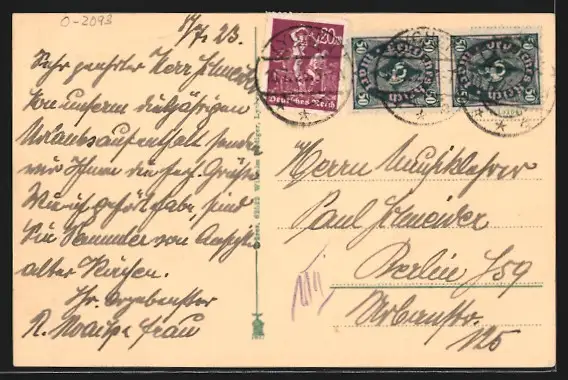 O-2093
17/7. 23.
Sehr geehrter Herr Schneider
Von unserm diesjährigen
Urlaubsaufenthalt senden
wir Ihnen die herzl. Grüße
Wie ich gehört habe, sind
Sie Sammler von Ansichten
alter Kirchen.
Ihr ergebenster
R. u. Frau
20
Deutsches Reich
50
50
50
50
Herrn Musiklehrer
Paul Schneider
Berlin S59
Urbanstr.
125